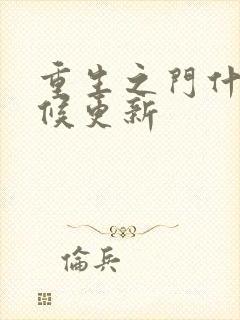 重生之門什
候更新
倫兵